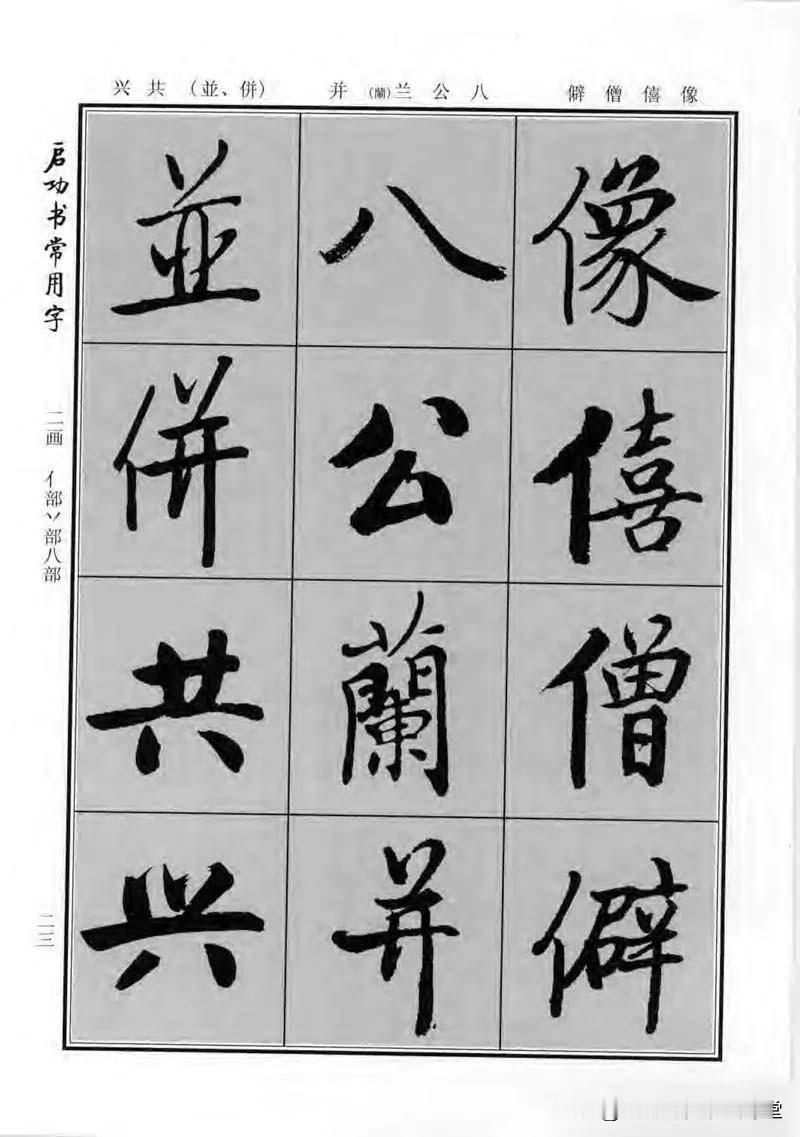 兴共（並、併） 并（蘭）兰公八 僻僧僖像
启功书常用字
二画 亻部丷部八部
二三
像僖僧僻
八公蘭并
並併共兴
堂